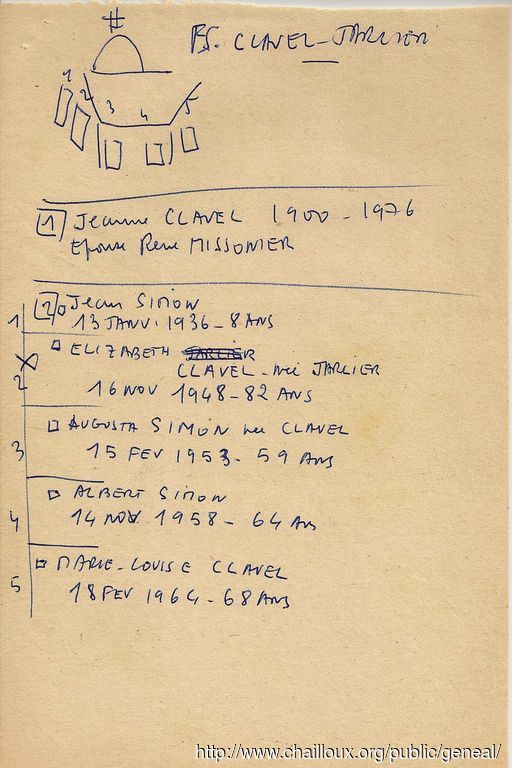 CLAVEL-JARLIER
1 2 3 4 5
1 Jeanne CLAVEL 1900 - 1976
Epouse René MISSONIER
2 Jean SIMON
1
13 JANV. 1936 - 8 ANS
ELIZABETH JARLIER
CLAVEL - née JARLIER
2
16 NOV 1948 - 82 ANS
AUGUSTA SIMON née CLAVEL
3
15 FEV 1953 - 59 ANS
ALBERT SIMON
4
14 NOV 1958 - 64 ANS
MARIE-LOUISE CLAVEL
5
18 FEV 1964 - 68 ANS
http://www.chailloux.org/public/geneal/